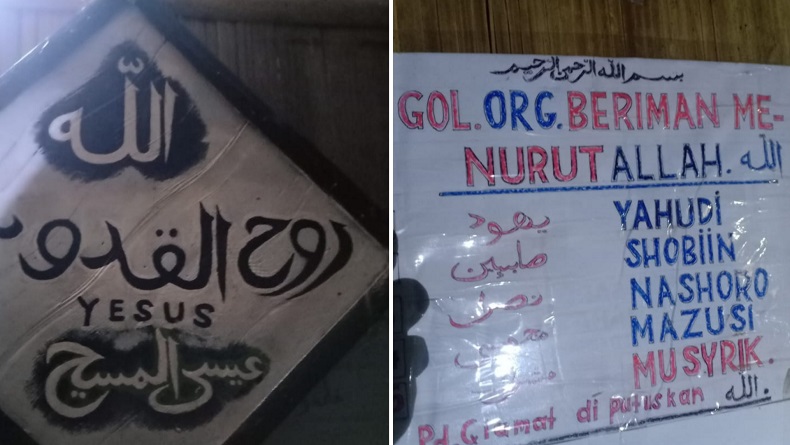 الله
روح القدو
YESUS
عيسى المسيح
بسم الله الرحمن الرحيم
GOL. ORG. BERIMAN ME-
NURUT ALLAH. الله
يهود YAHUDI
صابيين SHOBIIN
NASHORO
MAZUSI
MUSYRIK.
Pd. Qiamat di putuskan الله.